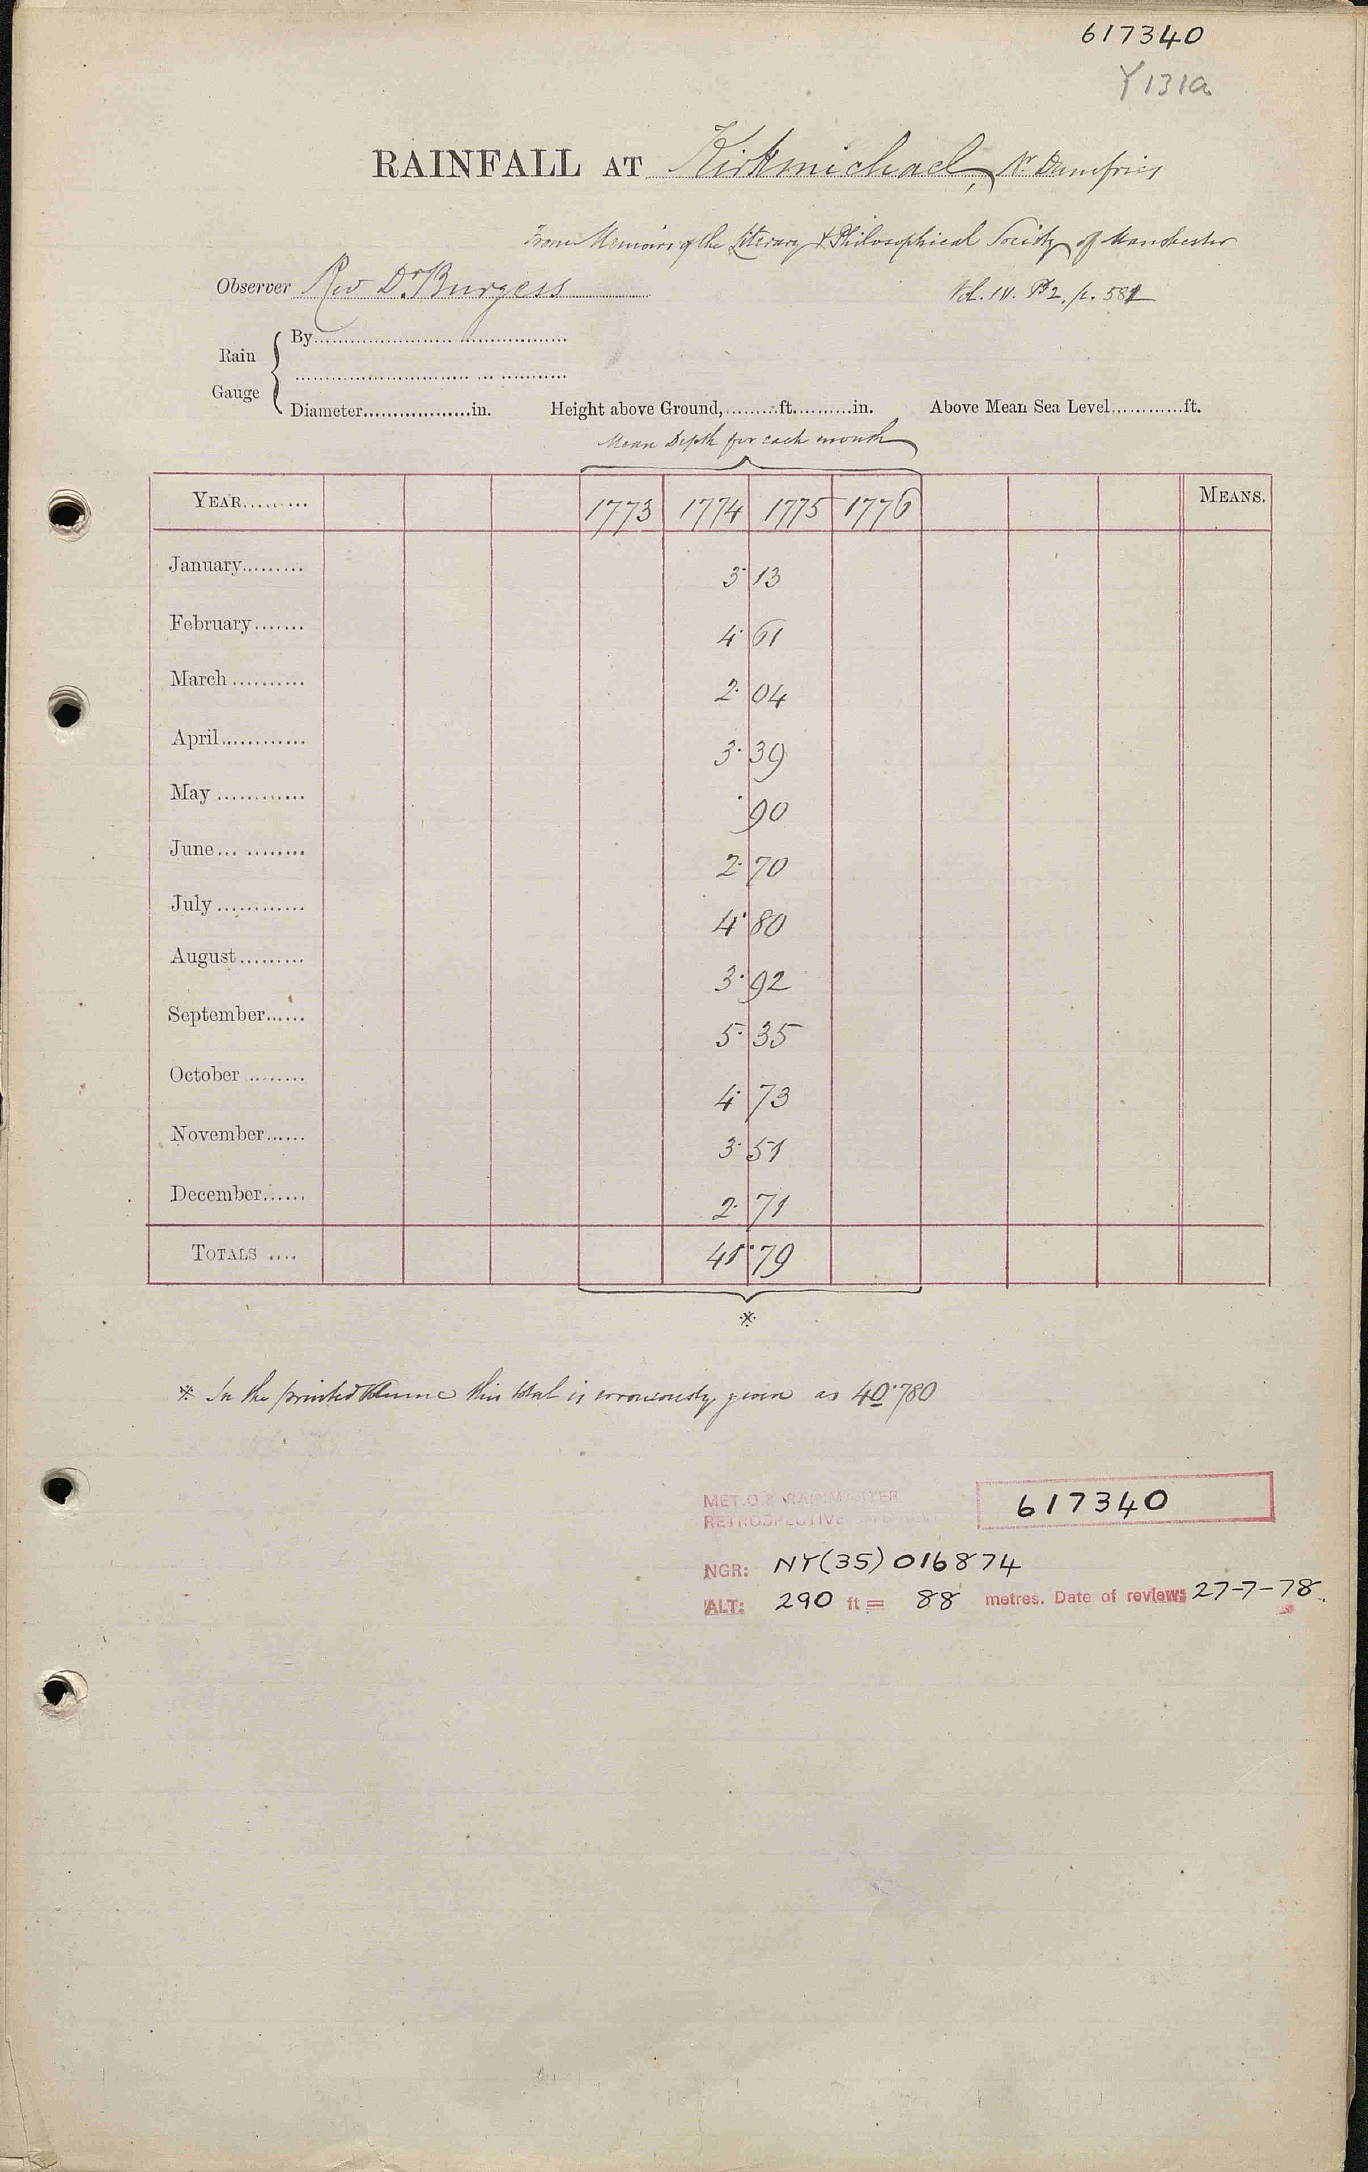 617340
Y131a
RAINFALL AT Kirkmichael, Nr Dumfries
From Memoirs of the Literary & Philosophical Society of Manchester
Observer Rev Dr. Burgess
Vol. IV. Pt 2. p. 581
Rain Gauge { By
Diameter in. Height above Ground, ft. in. Above Mean Sea Level ft.
Mean Depth for each month
YEAR 1773 1774 1775 1776 MEANS.
January 3 13
February 4. 61
March 2. 04
April 3. 39
May . 90
June 2. 70
July 4. 80
August 3. 92
September 5. 35
October 4. 73
November 3. 51
December 2. 71
TOTALS 41. 79
*
* In the printed Volume this total is erroneously given as 40.780
MET.O.8 RAINMASTER
RETROSPECTIVE
617340
NGR: NY(35) 016874
ALT: 290 ft = 88 metres. Date of review: 27-7-78.